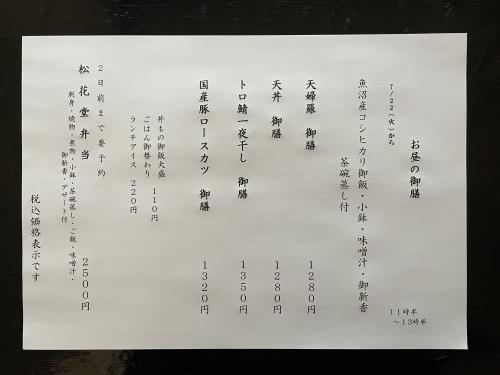 お昼の御膳
7/22(火)から
11時半
～13時半
魚沼産コシヒカリ御飯・小鉢・味噌汁・御新香
茶碗蒸し付
天婦羅 御膳 1280円
天丼 御膳 1280円
トロ鯖一夜干し 御膳 1350円
国産豚ロースカツ 御膳 1320円
丼もの御飯大盛
ごはん御替わり 110円
ランチアイス 220円
2日前まで要予約
松花堂弁当 2500円
刺身・焼物・煮物・小鉢・茶碗蒸し・ご飯・味噌汁・
御新香・デザート付
税込価格表示です